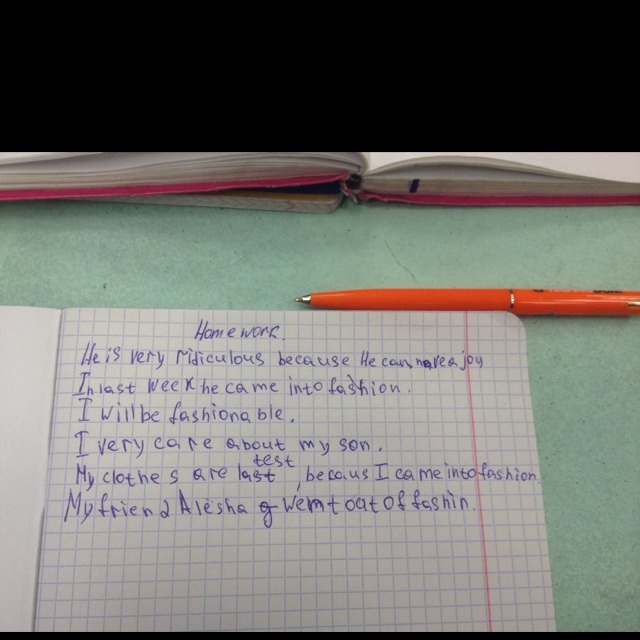 Homework.
He is very ridiculous because He can a joy
In last week he came into fashion.
I will be fashionable.
I very care about my son.
test
My clothes are last, becaus I came into fashion
My friend Alësha went out of fashin.